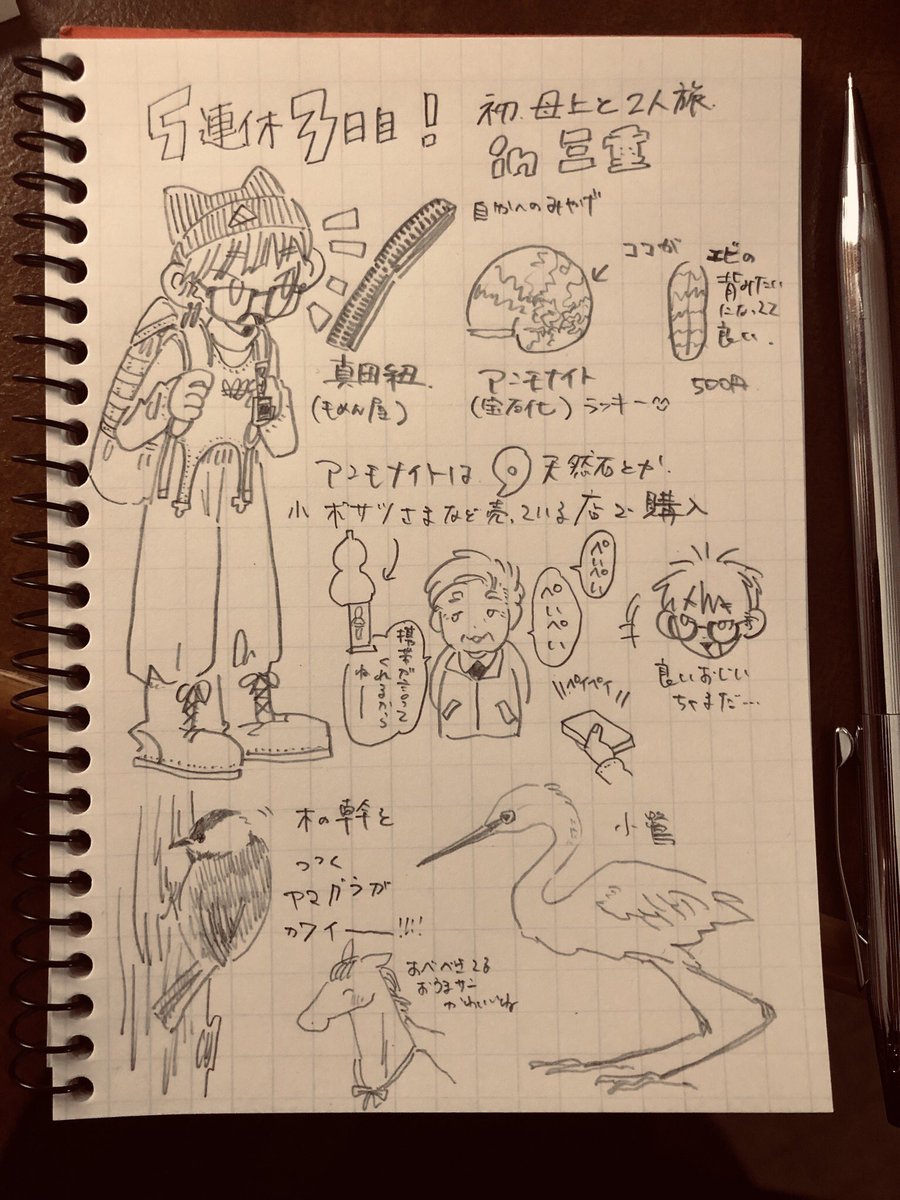 5連休3日目!
初 母上と2人旅.
in 宮島
自分へのみやげ
真田紐.
(もめん屋)
アンモナイト
(宝石化) ラッキー
ココが
エビの
背みたい
になってて
良い.
500円
アンモナイトは 天然石とか.
小ボサツさまなど売っている店で購入
携帯だっつって
くれるから
ねー
ぺいぺい
ぺいぺい
ペイペイ
良いおじい
ちゃまだ…
木の幹を
つつく
ヤマガラが
カワイー!!!!
小鷺
おべべきてる
おうまサン
かわいいね